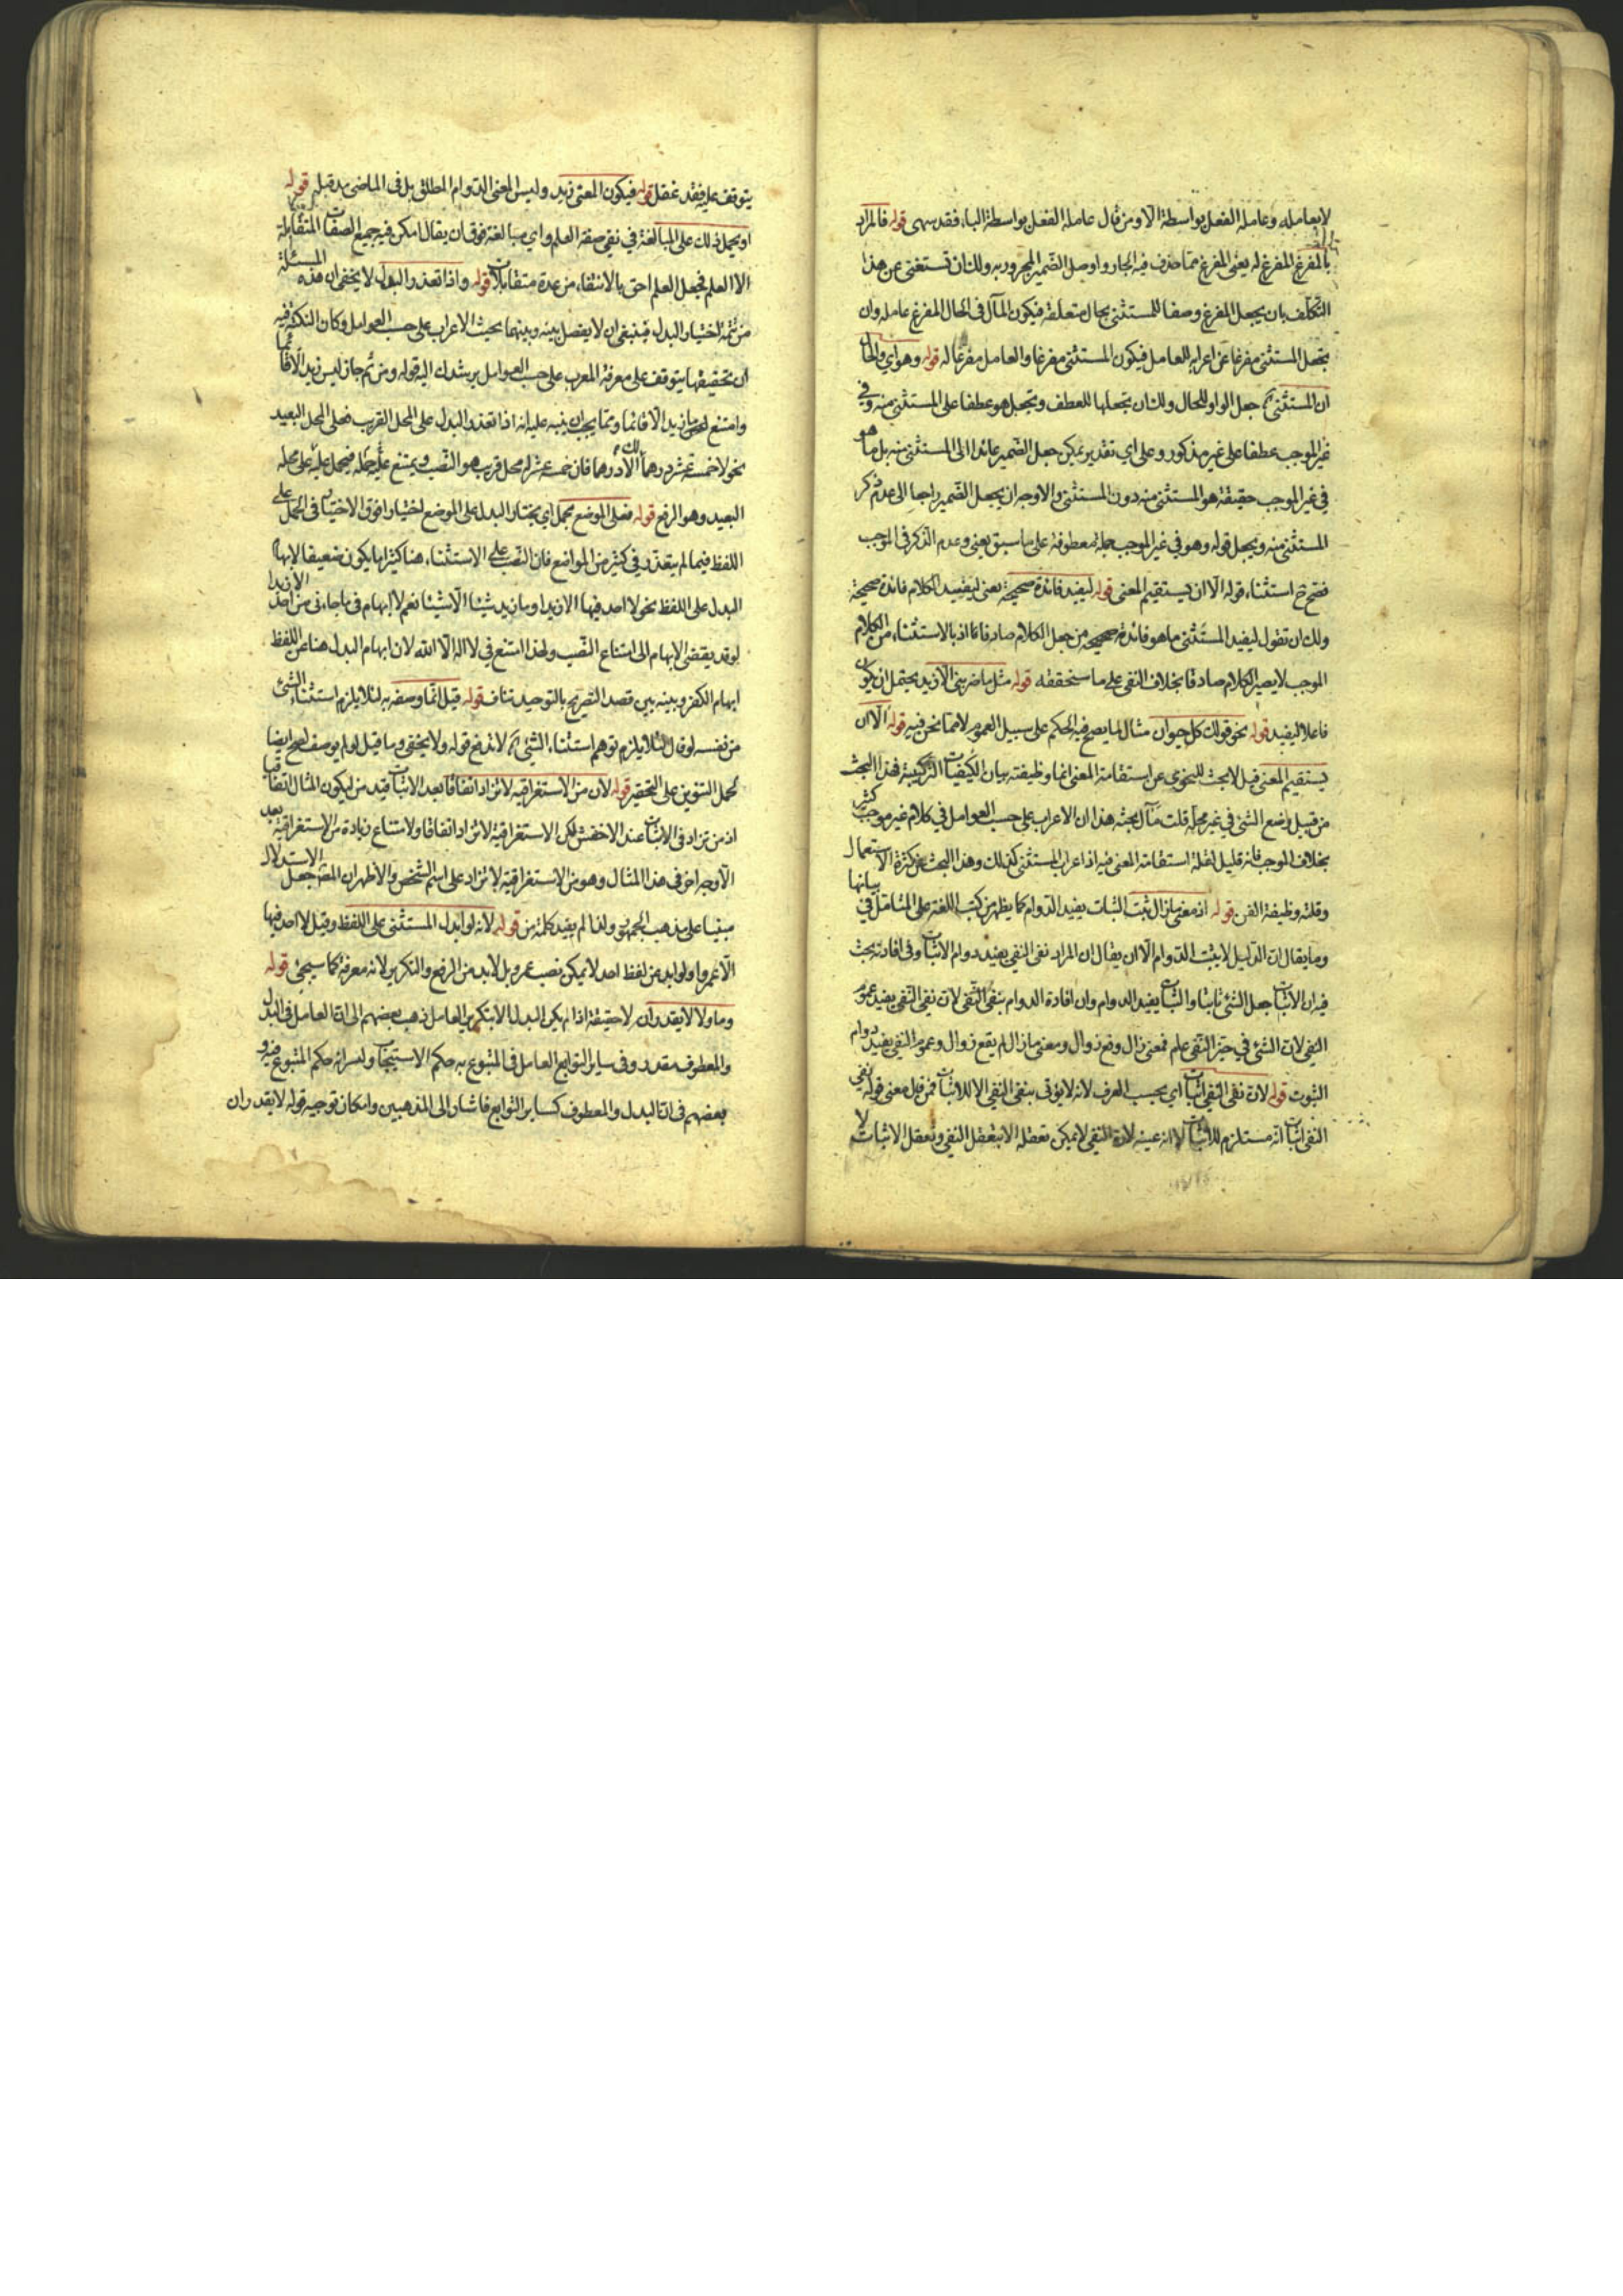 لا بعامله وعامله الفعل بواسطة الا ومن قال عامله الفعل بواسطة البا، فقد سهى قوله فالمراد
بالمفرغ المفرغ له يعنى المفرغ مما حذف فيه الجار واوصل الضمير المجرور به ولك ان تستغنى عن هذا
التكلف بان يجعل المفرغ وصفا للمستثنى بحال متعلقه فيكون المآل فى الحال المفرغ عامله وان
يجعل المستثنى مفرغا عن اعرابه للعامل فيكون المستثنى مفرغا والعامل مفرغا له قوله وهو اي والحال
ان المستثنى جعل الواو للحال ولك ان تجعلها للعطف وتجعل هو عطفا على المستثنى منه وفي
غير الموجب عطفا على غير مذكور وعلى اي تقدير يمكن جعل الضمير عائدا الى المستثنى منه بل ما هو
في غير الموجب حقيقة هو المستثنى منه دون المستثنى والاوجه ان يجعل الضمير راجعا الى عدم ذكر
المستثنى منه ويجعل قوله وهو في غير الموجب جملة معطوفة على ما سبق يعنى وعدم الذكر فى الموجب
فتح استثناء قوله الا ان يستقيم المعنى قوله ليفيد فائدة صحيحة يعنى ليفيد الكلام فائدة صحيحة
ولك ان تقول ليفيد المستثنى ما هو فائدة صحيحة من جعل الكلام صادقا اذ بالاستثناء من الكلام
الموجب لا يصير الكلام صادقا بخلاف النفى على ما ستحققه قوله مثل ما ضربنى الا زيد يحتمل ان يكون
فاعلا ليفيد قوله نحو قولك كل حيوان مثال لما يصح فيه الحكم على سبيل العموم لا مما نحن فيه قوله الا ان
يستقيم المعنى قيل لا بحث للنحوى عن استقامة المعنى انما وظيفته بيان الكيفيات التركيبية فهذا البحث
من قبيل وضع الشئ في غير محله قلت مآل بحثه هذا ان الاعراب على حسب العوامل في كلام غير موجب كثير
بخلاف الموجب فانه قليل لقلة استقامة المعنى فيه اذا اعراب المستثنى كذلك وهذا البحث عن كثرة الاستعمال
وقلته وظيفة الفن قوله اذ معنى ما زال ثبت الثبات يفيد الدوام كما يظهر من كتب اللغة على المتامل في بيانها
وما يقال ان الدليل لا يثبت الدوام الا ان يقال ان المراد نفى النفى يفيد دوام الاثبات وفى افادته بحث
فيه ان الاثبات جعل الشئ ثابتا والثبات يفيد الدوام وان افادة الدوام بنفى النفى لان نفى النفى يفيد عموم
النفى لان الشئ في حيز النفى علم فمعنى زال وقع زوال ومعنى ما زال لم يقع زوال وعموم النفى يفيد دوام
الثبوت قوله لان نفى النفى اثبات اي بحسب العرف لانه لا يؤتى بنفى النفى الا للاثبات فمن قبل معنى قوله نفى
النفى اثبات انه مستلزم للاثبات لا انه عينه لان النفى لا يمكن تعقله الا بتعقل النفى وتعقل الاثبات لا
يتوقف عليه فقد غفل قوله فيكون المعنى زيد وليس المعنى الدوام المطلق بل فى الماضى مد قبله قوله
او يحمل ذلك على المبالغة في نفى صفة العلم واي مبالغة فوق ان يقال امكن فيه جميع الصفات المتقابلة
الا العلم فجعل العلم احق بالانتفاء من عدة متقابلات قوله واذا تعذر البدل لا يخفى ان هذه المسئلة
من تتمة اختيار البدل فينبغى ان لا يفصل بينه وبينهما بحيث الاعراب على حسب العوامل وكان النكتة فيه
ان تحقيقها يتوقف على معرفة المعرب على حسب العوامل يرشدك اليه قوله ومن ثم جاز ليس زيد الا قائما
وامتنع ما زيد الا قائما ومما يجب ان ينبه عليه انه اذا تعذر البدل على المحل القريب فعلى المحل البعيد
نحو لا خمسة عشر درهما لك الا درهما فان خمسة عشر له محل قريب هو النصب ويمتنع حمله عليه فيحمل على محله
البعيد وهو الرفع قوله فعلى الموضع يحمل اي يختار البدل على الموضع اختيارا فوق الاختيار فى الحمل على
اللفظ فيما لم يتعذر في كثير من المواضع فان النصب على الاستثناء هنا كثيرا ما يكون ضعيفا لايهام
البدل على اللفظ نحو لا احد فيها الا زيدا وما زيد شيئا الا شيئا نعم لا ايهام فى ما جاءنى من احد الا زيدا
وقد يقضى الايهام الى امتناع النصب ولهذا امتنع في لا اله الا الله لان ايهام البدل هنا عن اللفظ
ايهام الكفر وبينه بين قصد التصريح بالتوحيد تناف قوله قيل انما وصفه به لئلا يلزم استثناء الشئ
من نفسه لو قال لئلا يلزم توهم استثناء الشئ لاندفع قوله ولا يخفى وما قيل لو لم يوصف لصح ايضا
لحمل التنوين على التحقير قوله لان من الاستغراقية لا تزاد اتفاقا بعد الاثبات قيد من ليكون المثال اتفاقيا
اذ من تزاد فى الاثبات عند الاخفش لكن الاستغراقية لا تزاد اتفاقا ولامتناع زيادة من الاستغراقية بعد
الا وجه اخر فى هذا المثال وهو من الاستغراقية لا تزاد على اسم الشخص والاظهر ان المص جعل الاستدلال
مبنيا على مذهب الجمهور ولذا لم يقيد كلمة من قوله لانه لو ابدل المستثنى على اللفظ وقيل لا احد فيها
الا عمرو ولو ابدل من لفظ احد لا يمكن نصب عمرو بل لابد من الرفع والتكرير لانه معرفة كما سيجئ قوله
وما ولا لا يقدران لا حقيقة اذا لم يكن البدل الا بتكرير العامل ذهب بعضهم الى ان العامل فى البدل
والمعطوف مقدر وفى سائر التوابع العامل فى المتبوع به حكم الاستيجاب ولسرائه حكم المتبوع فيه و
بعضهم فى ان البدل والمعطوف كسائر التوابع فاشار الى المذهبين وامكان توجيه قوله لا يقدران